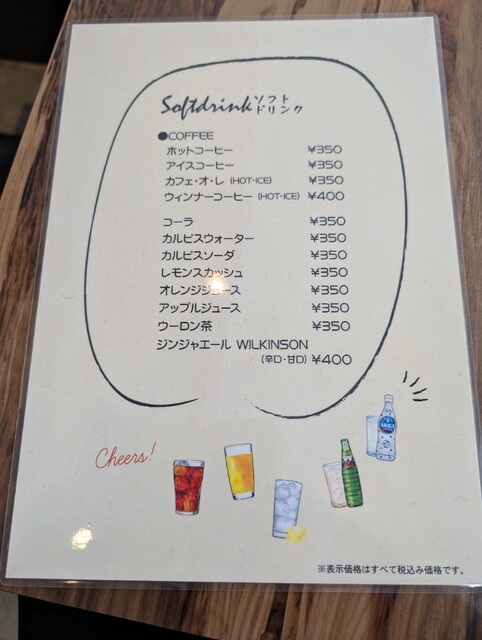 Softdrink ソフト
ドリンク
●COFFEE
ホットコーヒー ¥350
アイスコーヒー ¥350
カフェ・オ・レ (HOT・ICE) ¥350
ウィンナーコーヒー (HOT・ICE) ¥400
コーラ ¥350
カルピスウォーター ¥350
カルピスソーダ ¥350
レモンスカッシュ ¥350
オレンジジュース ¥350
アップルジュース ¥350
ウーロン茶 ¥350
ジンジャエール WILKINSON
(辛口・甘口) ¥400
Cheers!
※表示価格はすべて税込み価格です。